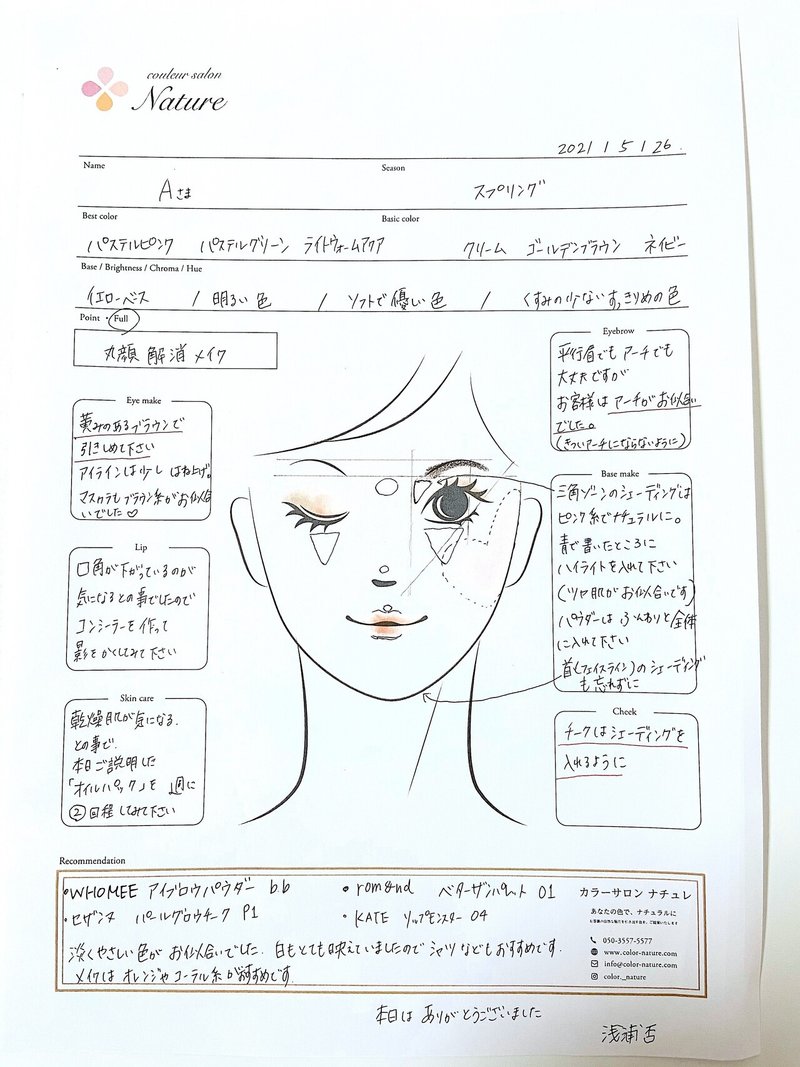 couleur salon
Nature
2021 / 5 / 26.
Name
Season
Aさま
スプリング
Best color
Basic color
パステルピンク パステルグリーン ライトウォームアクア
クリーム ゴールデンブラウン ネイビー
Base / Brightness / Chroma / Hue
イエローベース / 明るい色 / ソフトで優しい色 / くすみの少ないすっきりめの色
Point ・ Full
丸顔解消メイク
Eye make
黄みのあるブラウンで
引きしめて下さい
アイラインは少しはね上げ。
マスカラもブラウン系がお似合
いでした♡
Lip
口角が下がっているのが
気になるとの事でしたので
コンシーラーを作って
影をかくしてみて下さい
Skin care
乾燥肌が気になる
との事で、
本日ご説明した
「オイルパック」を 1週に
②回程してみて下さい
Eyebrow
平行眉でもアーチでも
大丈夫ですが
お客様はアーチがお似合い
でした。
(きついアーチにならないように)
Base make
三角ゾーンのシェーディングは
ピンク系でナチュラルに。
青で書いたところに
ハイライトを入れて下さい
(ツヤ肌がお似合いです)
パウダーはふんわりと全体
に入れて下さい
首(フェイスライン)のシェーディング
も忘れずに
Cheek
チークはシェーディングを
入れるように
Recommendation
・WHOMEE アイブロウパウダー bb
・rom&nd ベターザンパレット 01
・セザンヌ パールグロウチーク P1
・KATE リップモンスター 04
淡くやさしい色がお似合いでした。白もとても映えていましたのでシャツなどもおすすめです。
メイクはオレンジやコーラル系がおすすめです
カラーサロン ナチュレ
あなたの色で、ナチュラルに
050-3557-5577
www.color-nature.com
info@color-nature.com
color._nature
本日はありがとうございました